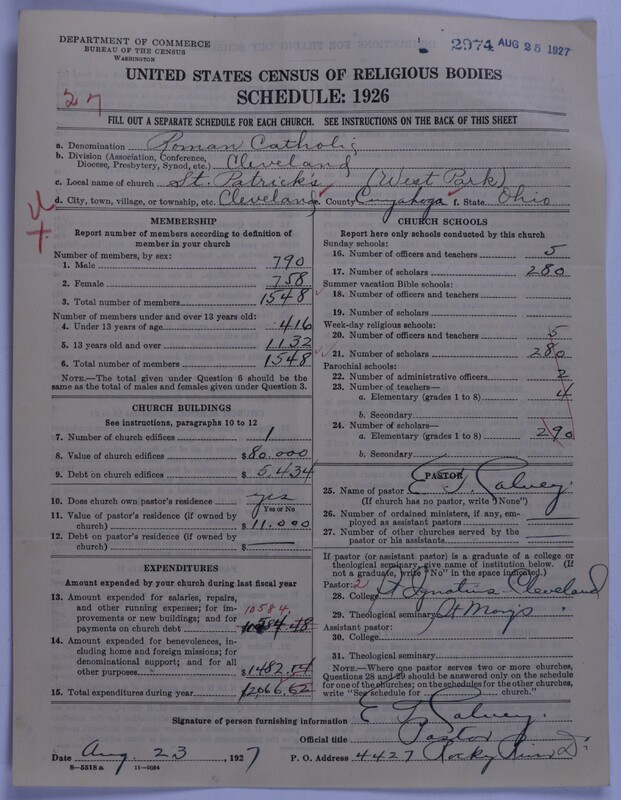 DEPARTMENT OF COMMERCE
BUREAU OF THE CENSUS
WASHINGTON
2974 AUG 25 1927
UNITED STATES CENSUS OF RELIGIOUS BODIES
SCHEDULE: 1926
27
FILL OUT A SEPARATE SCHEDULE FOR EACH CHURCH. SEE INSTRUCTIONS ON THE BACK OF THIS SHEET
a. Denomination Roman Catholic
b. Division (Association, Conference, Diocese, Presbytery, Synod, etc.) Cleveland
c. Local name of church St. Patrick's (West Park)
d. City, town, village, or township, etc. Cleveland e. County Cuyahoga f. State Ohio
MEMBERSHIP
Report number of members according to definition of
member in your church
Number of members, by sex:
1. Male 790
2. Female 758
3. Total number of members 1548
Number of members under and over 13 years old:
4. Under 13 years of age 416
5. 13 years old and over 1132
6. Total number of members 1548
NOTE.—The total given under Question 6 should be
same as the total of males and females given under Question 3.
CHURCH BUILDINGS
See instructions, paragraphs 10 to 12
7. Number of church edifices 1
8. Value of church edifices $80.000
9. Debt on church edifices $5,434
10. Does church own pastor's residence yes
Yes or No
11. Value of pastor's residence (if owned by
church) $11.000
12. Debt on pastor's residence (if owned by
church) $
EXPENDITURES
Amount expended by your church during last fiscal year
13. Amount expended for salaries, repairs,
and other running expenses; for im-
provements or new buildings; and for
payments on church debt
10584.
14. Amount expended for benevolences, in-
cluding home and foreign missions; for
denominational support; and for all
other purposes $1482.54
15. Total expenditures during year
CHURCH SCHOOLS
Report here only schools conducted by this church
Sunday schools:
16. Number of officers and teachers 5
17. Number of scholars 280
Summer vacation Bible schools:
18. Number of officers and teachers
19. Number of scholars
Week-day religious schools:
20. Number of officers and teachers 5
21. Number of scholars 280
Parochial schools:
22. Number of administrative officers 2
23. Number of teachers—
a. Elementary (grades 1 to 8) 4
b. Secondary
24. Number of scholars—
a. Elementary (grades 1 to 8) 290
b. Secondary
PASTOR
25. Name of pastor
(If church has no pastor, write "None")
26. Number of ordained ministers, if any, em-
ployed as assistant pastors
27. Number of other churches served by the
pastor or his assistants
If pastor (or assistant pastor) is a graduate of a college or
theological seminary, give name of institution below. (If
not a graduate, write "No" in the space indicated.)
Pastor: 2
28. College St Ignatius Cleveland
29. Theological seminary St Mary's "
Assistant pastor:
30. College
31. Theological seminary
NOTE.—Where one pastor serves two or more churches,
Questions 28 and 29 should be answered only on the schedule
for one of the churches; on the schedules for the other churches,
write "See schedule for church."
Signature of person furnishing information
Official title Pastor
Date Aug. 23, 1927 P. O. Address 4427 Rocky River D.
8—5518 a 11—9084